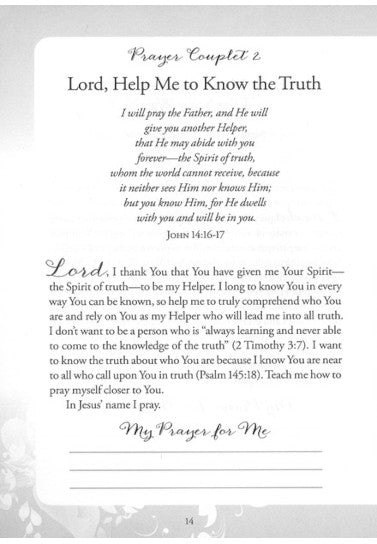 Prayer Couplet 2
Lord, Help Me to Know the Truth
I will pray the Father, and He will
give you another Helper,
that He may abide with you
forever—the Spirit of truth,
whom the world cannot receive, because
it neither sees Him nor knows Him;
but you know Him, for He dwells
with you and will be in you.
John 14:16-17
Lord, I thank You that You have given me Your Spirit—
the Spirit of truth—to be my Helper. I long to know You in every
way You can be known, so help me to truly comprehend who You
are and rely on You as my Helper who will lead me into all truth.
I don't want to be a person who is "always learning and never able
to come to the knowledge of the truth" (2 Timothy 3:7). I want
to know the truth about who You are because I know You are near
to all who call upon You in truth (Psalm 145:18). Teach me how to
pray myself closer to You.
In Jesus' name I pray.
My Prayer for Me
14